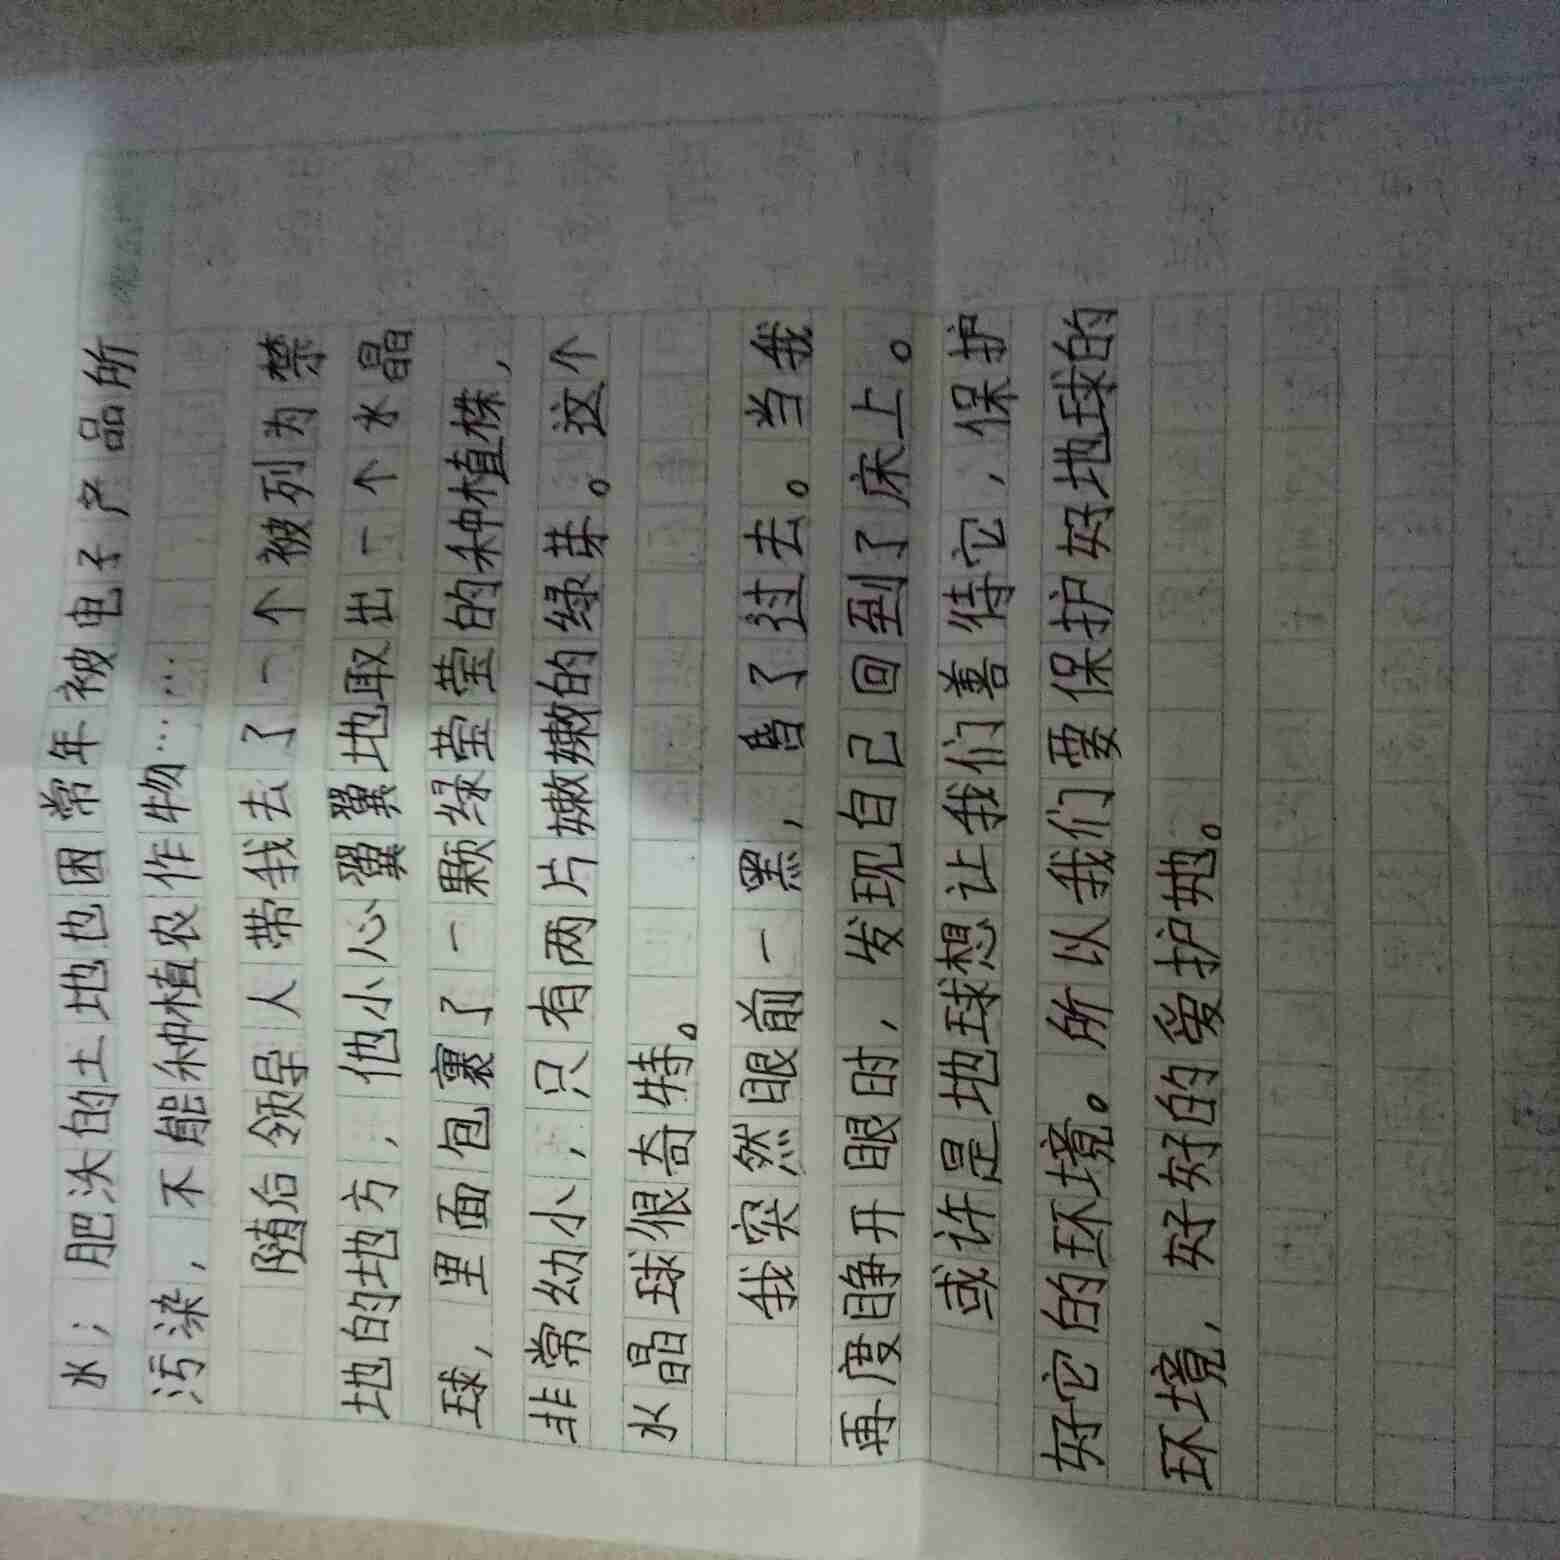 水；肥沃的土地也因常年被电子产品所
污染，不能种植农作物……
随后领导人带我去了一个被列为禁
地的地方，他小心翼翼地取出一个水晶
球，里面包裹了一颗绿莹莹的种植株，
非常幼小，只有两片嫩嫩的绿芽。这个
水晶球很奇特。
我突然眼前一黑，昏了过去。当我
再度睁开眼时，发现自己回到了床上。
或许是地球想让我们善待它，保护
好它的环境。所以我们要保护好地球的
环境，好好的爱护她。